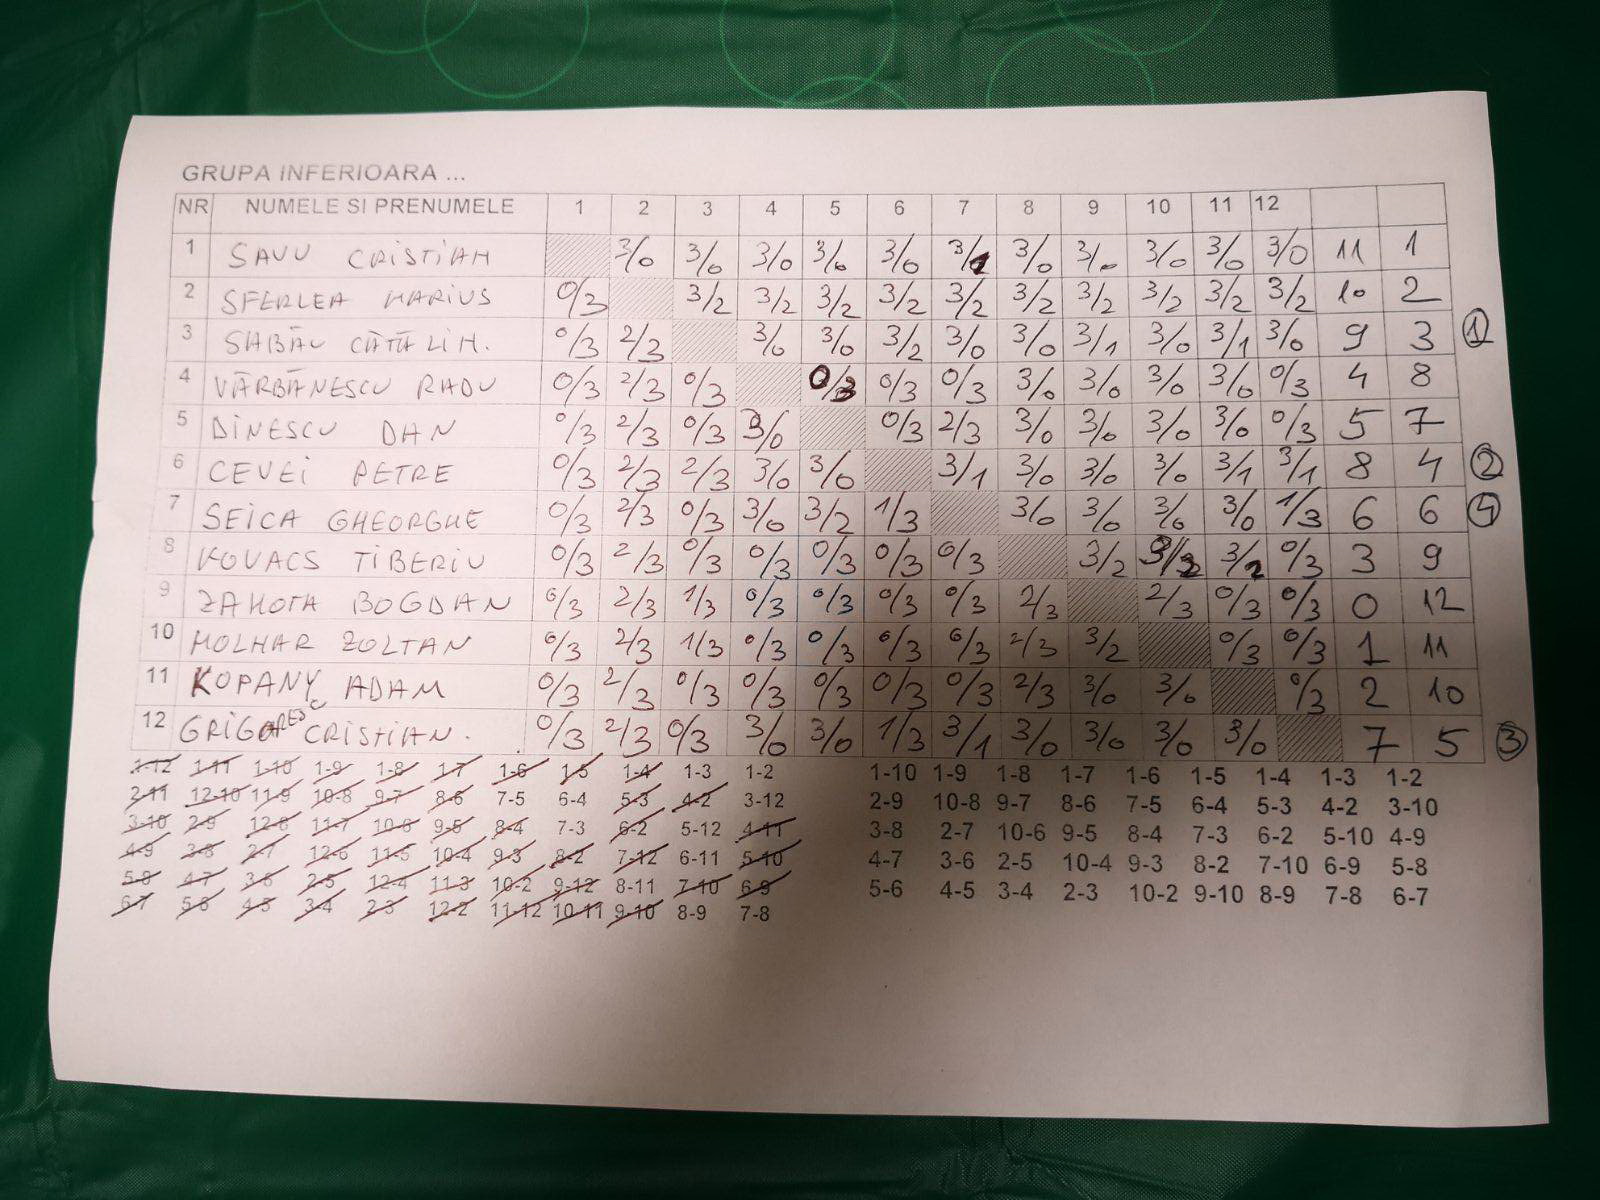 GRUPA INFERIOARA ...
NR NUMELE SI PRENUMELE 1 2 3 4 5 6 7 8 9 10 11 12
1 SAVU CRISTIAN 3/0 3/0 3/0 3/0 3/0 3/1 3/0 3/0 3/0 3/0 3/0 11 1
2 SFERLEA MARIUS 0/3 3/2 3/2 3/2 3/2 3/2 3/2 3/2 3/2 3/2 3/2 10 2
3 SABĂU CĂTĂLIN. 0/3 2/3 3/0 3/0 3/2 3/0 3/0 3/1 3/0 3/1 3/0 9 3 1
4 VĂRBĂNESCU RADU 0/3 2/3 0/3 0/3 0/3 0/3 3/0 3/0 3/0 3/0 0/3 4 8
5 DINESCU DAN 0/3 2/3 0/3 3/0 0/3 2/3 3/0 3/0 3/0 3/0 0/3 5 7
6 CEVEI PETRE 0/3 2/3 2/3 3/0 3/0 3/1 3/0 3/0 3/0 3/1 3/1 8 4 2
7 SEICA GHEORGHE 0/3 2/3 0/3 3/0 3/2 1/3 3/0 3/0 3/0 3/0 1/3 6 6 4
8 KOVACS TIBERIU 0/3 2/3 0/3 0/3 0/3 0/3 0/3 3/2 3/2 3/2 0/3 3 9
9 ZAHOTA BOGDAN 0/3 2/3 1/3 0/3 0/3 0/3 0/3 2/3 2/3 0/3 0/3 0 12
10 MOLNAR ZOLTAN 0/3 2/3 1/3 0/3 0/3 0/3 0/3 2/3 3/2 0/3 0/3 1 11
11 KOPANY ADAM 0/3 2/3 0/3 0/3 0/3 0/3 0/3 2/3 3/0 3/0 0/3 2 10
12 GRIGORESCU CRISTIAN. 0/3 2/3 0/3 3/0 3/0 1/3 3/1 3/0 3/0 3/0 3/0 7 5 3
1-12 1-11 1-10 1-9 1-8 1-7 1-6 1-5 1-4 1-3 1-2 1-10 1-9 1-8 1-7 1-6 1-5 1-4 1-3 1-2
2-11 12-10 11-9 10-8 9-7 8-6 7-5 6-4 5-3 4-2 3-12 2-9 10-8 9-7 8-6 7-5 6-4 5-3 4-2 3-10
3-10 2-9 12-8 11-7 10-6 9-5 8-4 7-3 6-2 5-12 4-11 3-8 2-7 10-6 9-5 8-4 7-3 6-2 5-10 4-9
4-9 3-8 2-7 12-6 11-5 10-4 9-3 8-2 7-12 6-11 5-10 4-7 3-6 2-5 10-4 9-3 8-2 7-10 6-9 5-8
5-8 4-7 3-6 2-5 12-4 11-3 10-2 9-12 8-11 7-10 6-9 5-6 4-5 3-4 2-3 10-2 9-10 8-9 7-8 6-7
6-7 5-6 4-5 3-4 2-3 12-2 11-12 10-11 9-10 8-9 7-8